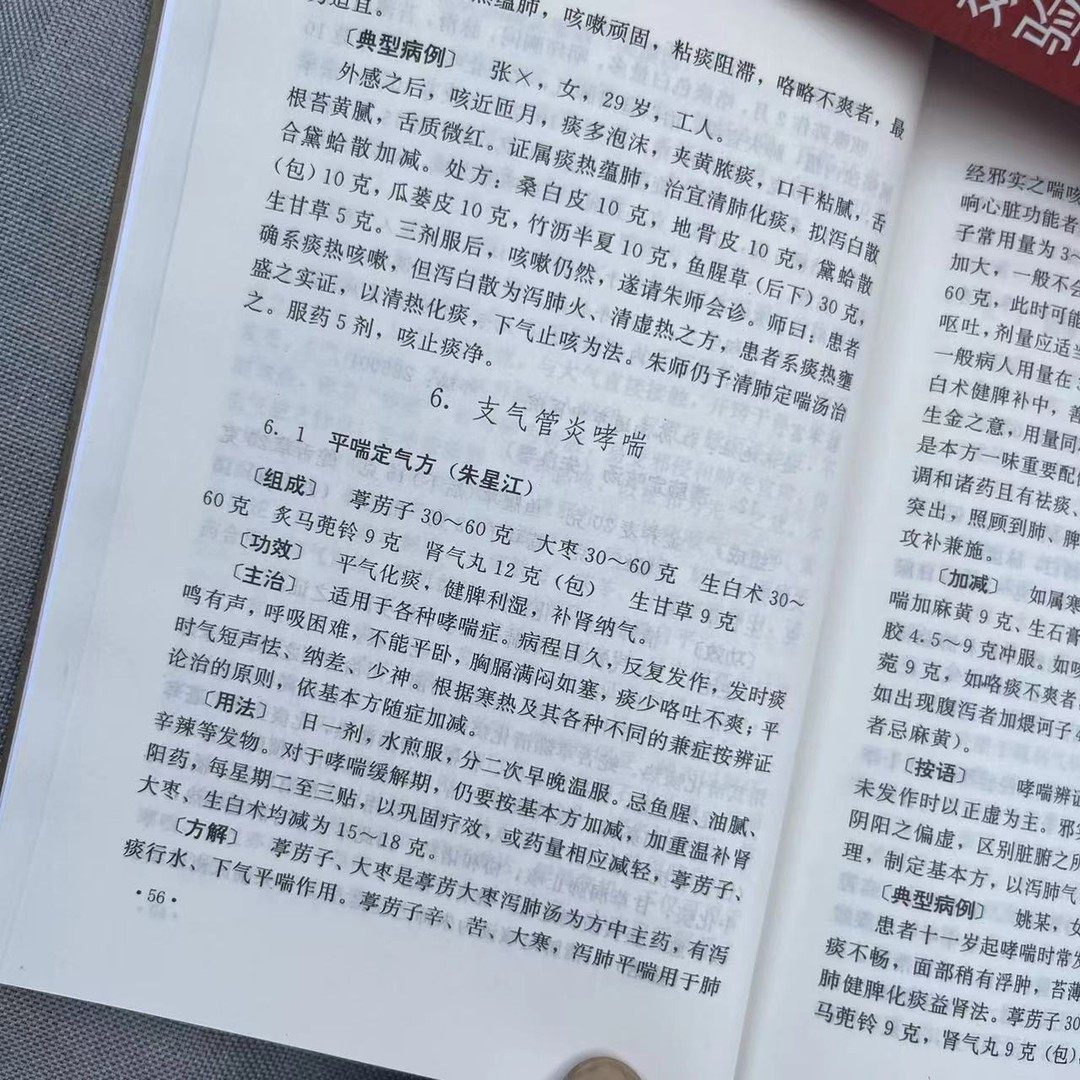 热蕴肺，咳嗽顽固，粘痰阻滞，咯略不爽者，最
适宜。
〔典型病例〕 张×，女，29岁，工人。
外感之后，咳近匝月，痰多泡沫，夹黄脓痰，口干粘腻，舌
根苔黄腻，舌质微红。证属痰热蕴肺，治宜清肺化痰，拟泻白散
合黛蛤散加减。处方：桑白皮10克，地骨皮10克，黛蛤散
(包)10克，瓜蒌皮10克，竹沥半夏10克，鱼腥草(后下)30克，
生甘草5克。三剂服后，咳嗽仍然，遂请朱师会诊。师曰：患者
确系痰热咳嗽，但泻白散为泻肺火、清虚热之方，患者系痰热壅
盛之实证，以清热化痰，下气止咳为法。朱师仍予清肺定喘汤治
之。服药5剂，咳止痰净。
6. 支气管炎哮喘
6.1 平喘定气方（朱星江）
〔组成〕 葶苈子30～60克 大枣30～60克 生白术30～
60克 炙马蔸铃9克 肾气丸12克(包) 生甘草9克
〔功效〕 平气化痰，健脾利湿，补肾纳气。
〔主治〕 适用于各种哮喘症。病程日久，反复发作，发时痰
鸣有声，呼吸困难，不能平卧，胸膈满闷如塞，痰少咯吐不爽；平
时气短声怯、纳差、少神。根据寒热及其各种不同的兼症按辨证
论治的原则，依基本方随症加减。
〔用法〕 日一剂，水煎服，分二次早晚温服。忌鱼腥、油腻、
辛辣等发物。对于哮喘缓解期，仍要按基本方加减，加重温补肾
阳药，每星期二至三贴，以巩固疗效，或药量相应减轻，葶苈子、
大枣、生白术均减为15～18克。
〔方解〕 葶苈子、大枣是葶苈大枣泻肺汤为方中主药，有泻
痰行水、下气平喘作用。葶苈子辛、苦、大寒，泻肺平喘用于肺
·56·
经邪实之喘咳
响心脏功能者
子常用量为3～
加大，一般不会
60克，此时可能
呕吐，剂量应适当
一般病人用量在
白术健脾补中，善
生金之意，用量同
是本方一味重要配
调和诸药且有祛痰、
突出，照顾到肺、脾
攻补兼施。
〔加减〕 如属寒
喘加麻黄9克、生石膏
胶4.5～9克冲服。如
菀9克，如咯痰不爽者
如出现腹泻者加煨诃子4
者忌麻黄)。
〔按语〕 哮喘辨
未发作时以正虚为主。邪
阴阳之偏虚，区别脏腑之所
理，制定基本方，以泻肺气
〔典型病例〕 姚某，女
患者十一岁起哮喘时常发
痰不畅，面部稍有浮肿，苔薄
肺健脾化痰益肾法。葶苈子30
马蔸铃9克，肾气丸9克(包)
验